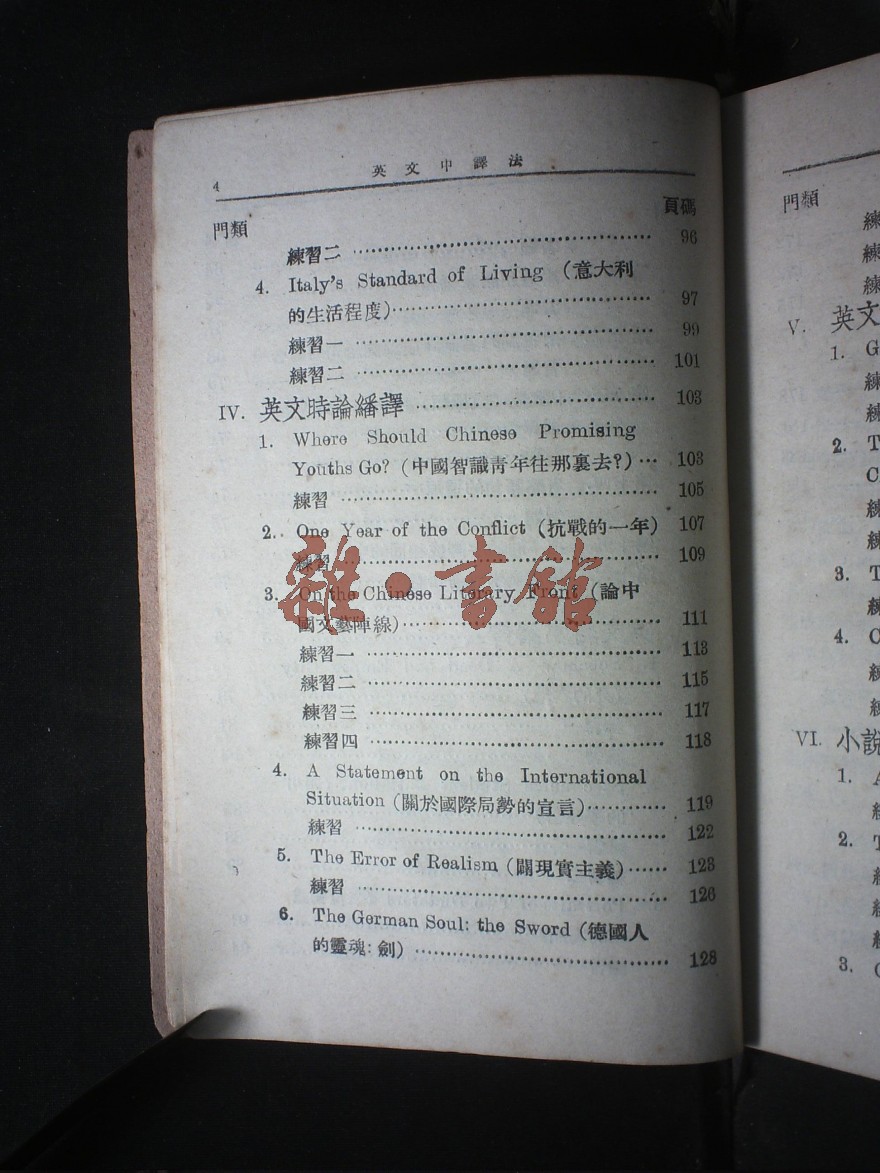 4 英文中譯法
門類 頁碼
練習二 96
4. Italy's Standard of Living (意大利
的生活程度) 97
練習一 99
練習二 101
IV. 英文時論繙譯 103
1. Where Should Chinese Promising
Youths Go? (中國智識青年往那裏去?) 103
練習 105
2. One Year of the Conflict (抗戰的一年) 107
練習 109
3. On the Chinese Literary Front (論中
國文藝陣線) 111
練習一 113
練習二 115
練習三 117
練習四 118
4. A Statement on the International
Situation (關於國際局勢的宣言) 119
練習 122
5. The Error of Realism (闢現實主義) 123
練習 126
6. The German Soul: the Sword (德國人
的靈魂: 劍) 128
雜·書館
門類
練
練
練
V. 英文
1. G
練
練
2. T
C
練
練
3. T
練
4. C
練
練
VI. 小說
1. A
練
2. T
練
練
練
3. C